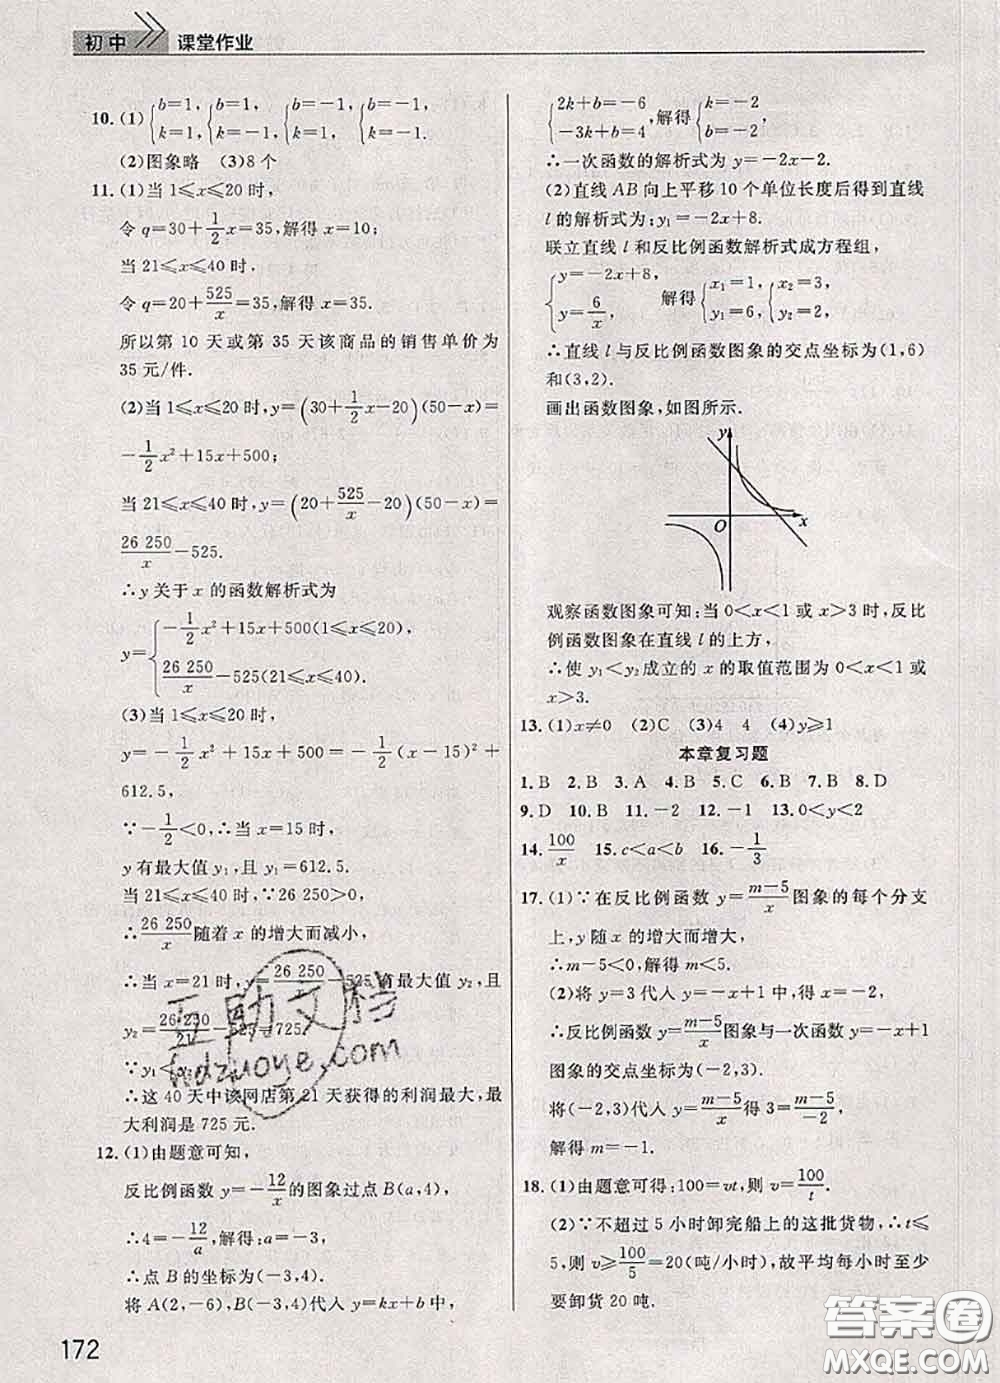 初中 课堂作业
10. (1) {b=1, k=1, {b=1, k=-1, {b=-1, k=1, {b=-1, k=-1.
(2)图象略 (3)8个
11. (1)当 1≤x≤20 时,
令 q=30+1/2 x=35,解得 x=10;
当 21≤x≤40 时,
令 q=20+525/x=35,解得 x=35.
所以第 10 天或第 35 天该商品的销售单价为
35 元/件.
(2)当 1≤x≤20 时,y=(30+1/2 x-20)(50-x)=
-1/2 x²+15x+500;
当 21≤x≤40 时,y=(20+525/x-20)(50-x)=
26 250/x-525.
∴y 关于 x 的函数解析式为
y={-1/2 x²+15x+500(1≤x≤20),
26 250/x-525(21≤x≤40).
(3)当 1≤x≤20 时,
y=-1/2 x²+15x+500=-1/2 (x-15)²+
612.5,
∵-1/2<0,∴当 x=15 时,
y 有最大值 y₁,且 y₁=612.5.
当 21≤x≤40 时,∵26 250>0,
∴26 250/x 随着 x 的增大而减小,
∴当 x=21 时,y=26 250/x-525 有最大值 y₂,且
y₂=26 250/21-525=725.
∵y₁<y₂,
∴这 40 天中该网店第 21 天获得的利润最大,最
大利润是 725 元.
12. (1)由题意可知,
反比例函数 y=-12/x 的图象过点 B(a,4),
∴4=-12/a,解得:a=-3,
∴点 B 的坐标为(-3,4).
将 A(2,-6),B(-3,4)代入 y=kx+b 中,
172
{2k+b=-6, -3k+b=4, 解得{k=-2, b=-2,
∴一次函数的解析式为 y=-2x-2.
(2)直线 AB 向上平移 10 个单位长度后得到直线
l 的解析式为:y₁=-2x+8.
联立直线 l 和反比例函数解析式成方程组,
{y=-2x+8, y=6/x, 解得{x₁=1, y₁=6, {x₂=3, y₂=2,
∴直线 l 与反比例函数图象的交点坐标为(1,6)
和(3,2).
画出函数图象,如图所示.
y
O x
观察函数图象可知:当 0<x<1 或 x>3 时,反比
例函数图象在直线 l 的上方,
∴使 y₁<y₂ 成立的 x 的取值范围为 0<x<1 或
x>3.
13. (1)x≠0 (2)C (3)4 4 (4)y≥1
本章复习题
1. B 2. B 3. A 4. B 5. C 6. B 7. B 8. D
9. D 10. B 11. -2 12. -1 13. 0<y<2
14. 100/x 15. c<a<b 16. -1/3
17. (1)∵在反比例函数 y=m-5/x 图象的每个分支
上,y 随 x 的增大而增大,
∴m-5<0,解得 m<5.
(2)将 y=3 代入 y=-x+1 中,得 x=-2,
∴反比例函数 y=m-5/x 图象与一次函数 y=-x+1
图象的交点坐标为(-2,3).
将(-2,3)代入 y=m-5/x 得 3=m-5/-2,
解得 m=-1.
18. (1)由题意可得:100=vt,则 v=100/t.
(2)∵不超过 5 小时卸完船上的这批货物,∴t≤
5,则 v≥100/5=20(吨/小时),故平均每小时至少
要卸货 20 吨.
互助文档
hdzuoye.com
答案圈
MXQE.COM